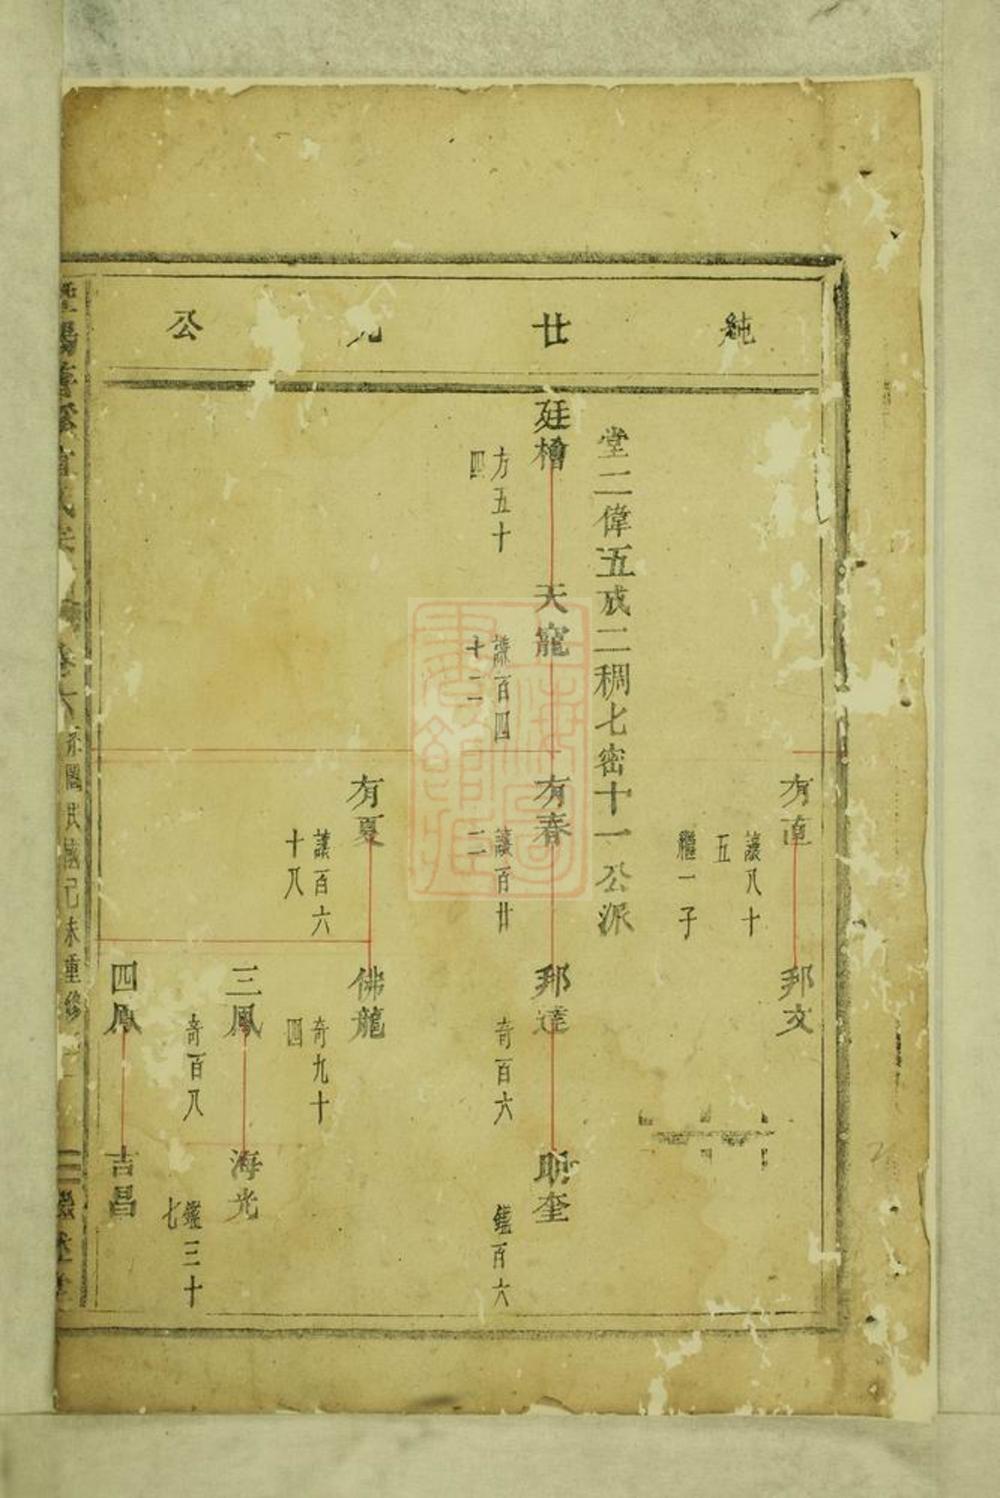 純廿九公
有直
讓八十
五
繼一子
邦文
堂二偉五戒二稠七密十一公派
廷檜
方五十
四
天寵
謙百四
十二
有春
讓百廿
二
邦達
奇百六
聯奎
鑑百六
有夏
讓百六
十八
佛龍
奇九十
四
三鳳
奇百八
海光
鑑三十
七
四鳳
吉昌
卷六
己未重修